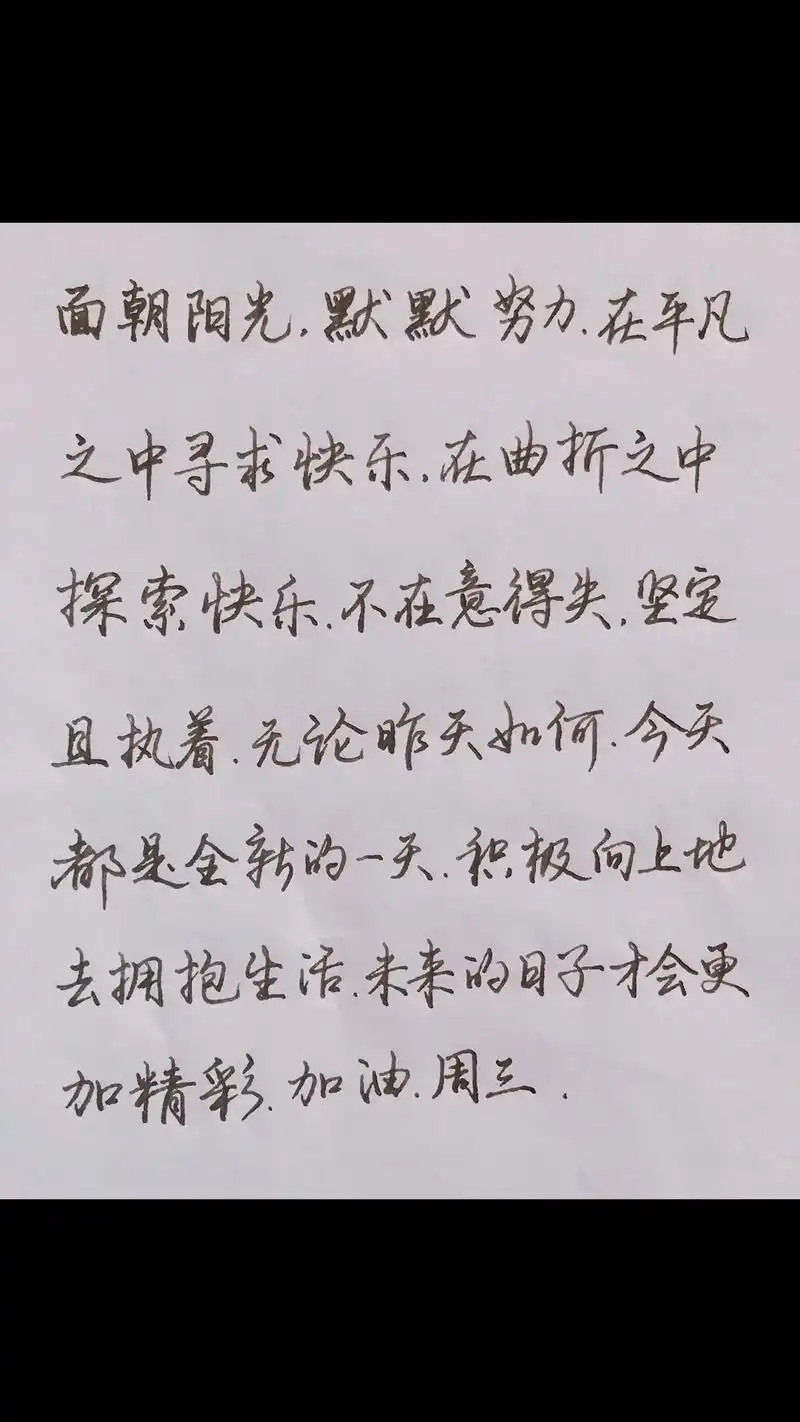 面朝阳光,默默努力.在平凡
之中寻求快乐,在曲折之中
探索快乐.不在意得失,坚定
且执着.无论昨天如何.今天
都是全新的一天.积极向上地
去拥抱生活.未来的日子才会更
加精彩.加油.周三.